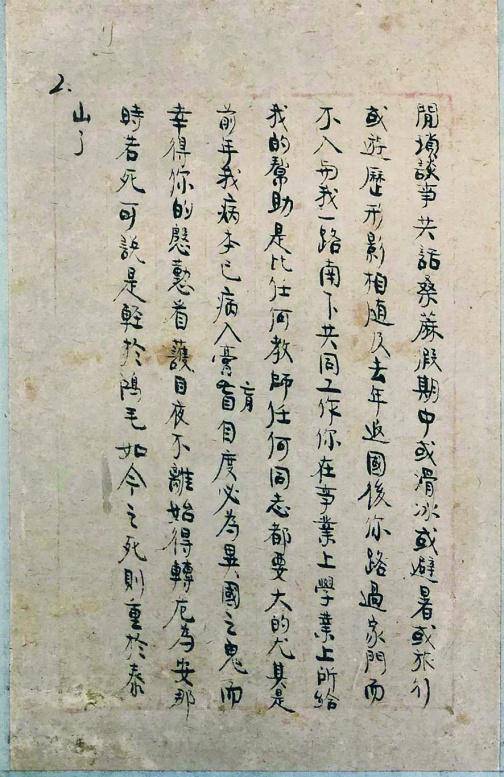 2.
閒瑣談事共話桑蔴假期中或滑冰或避暑或旅行
或遊歷形影相随及去年返國後你路過家門而
不入與我一路南下共同工作你在事業上學業上所給
我的幫助是比任何教師任何同志都要大的尤其是
前年我病本已病入膏肓自度必為異國之鬼而
幸得你的慇懃看護日夜不離始得轉危為安那
時若死可說是輕於鴻毛如今之死則重於泰
山了